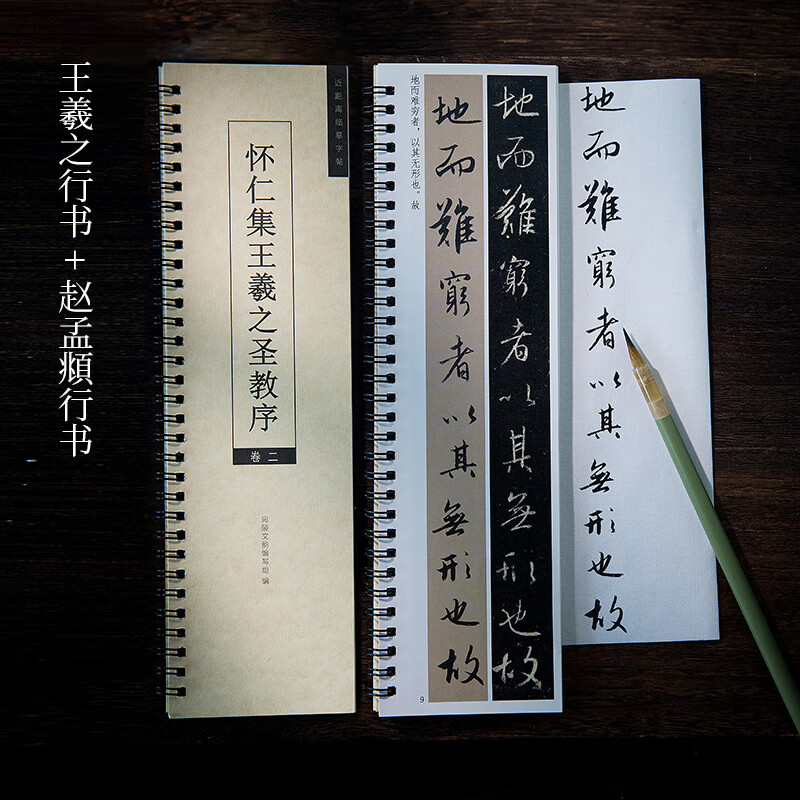 王羲之行书+赵孟頫行书
近距离临摹字帖
怀仁集王羲之圣教序
卷二
宛陵文韵编写组 编
地而难穷者,以其无形也。故
地而難窮者以其無形也故
地而難窮者以其無形也故
地而難窮者以其無形也故
9